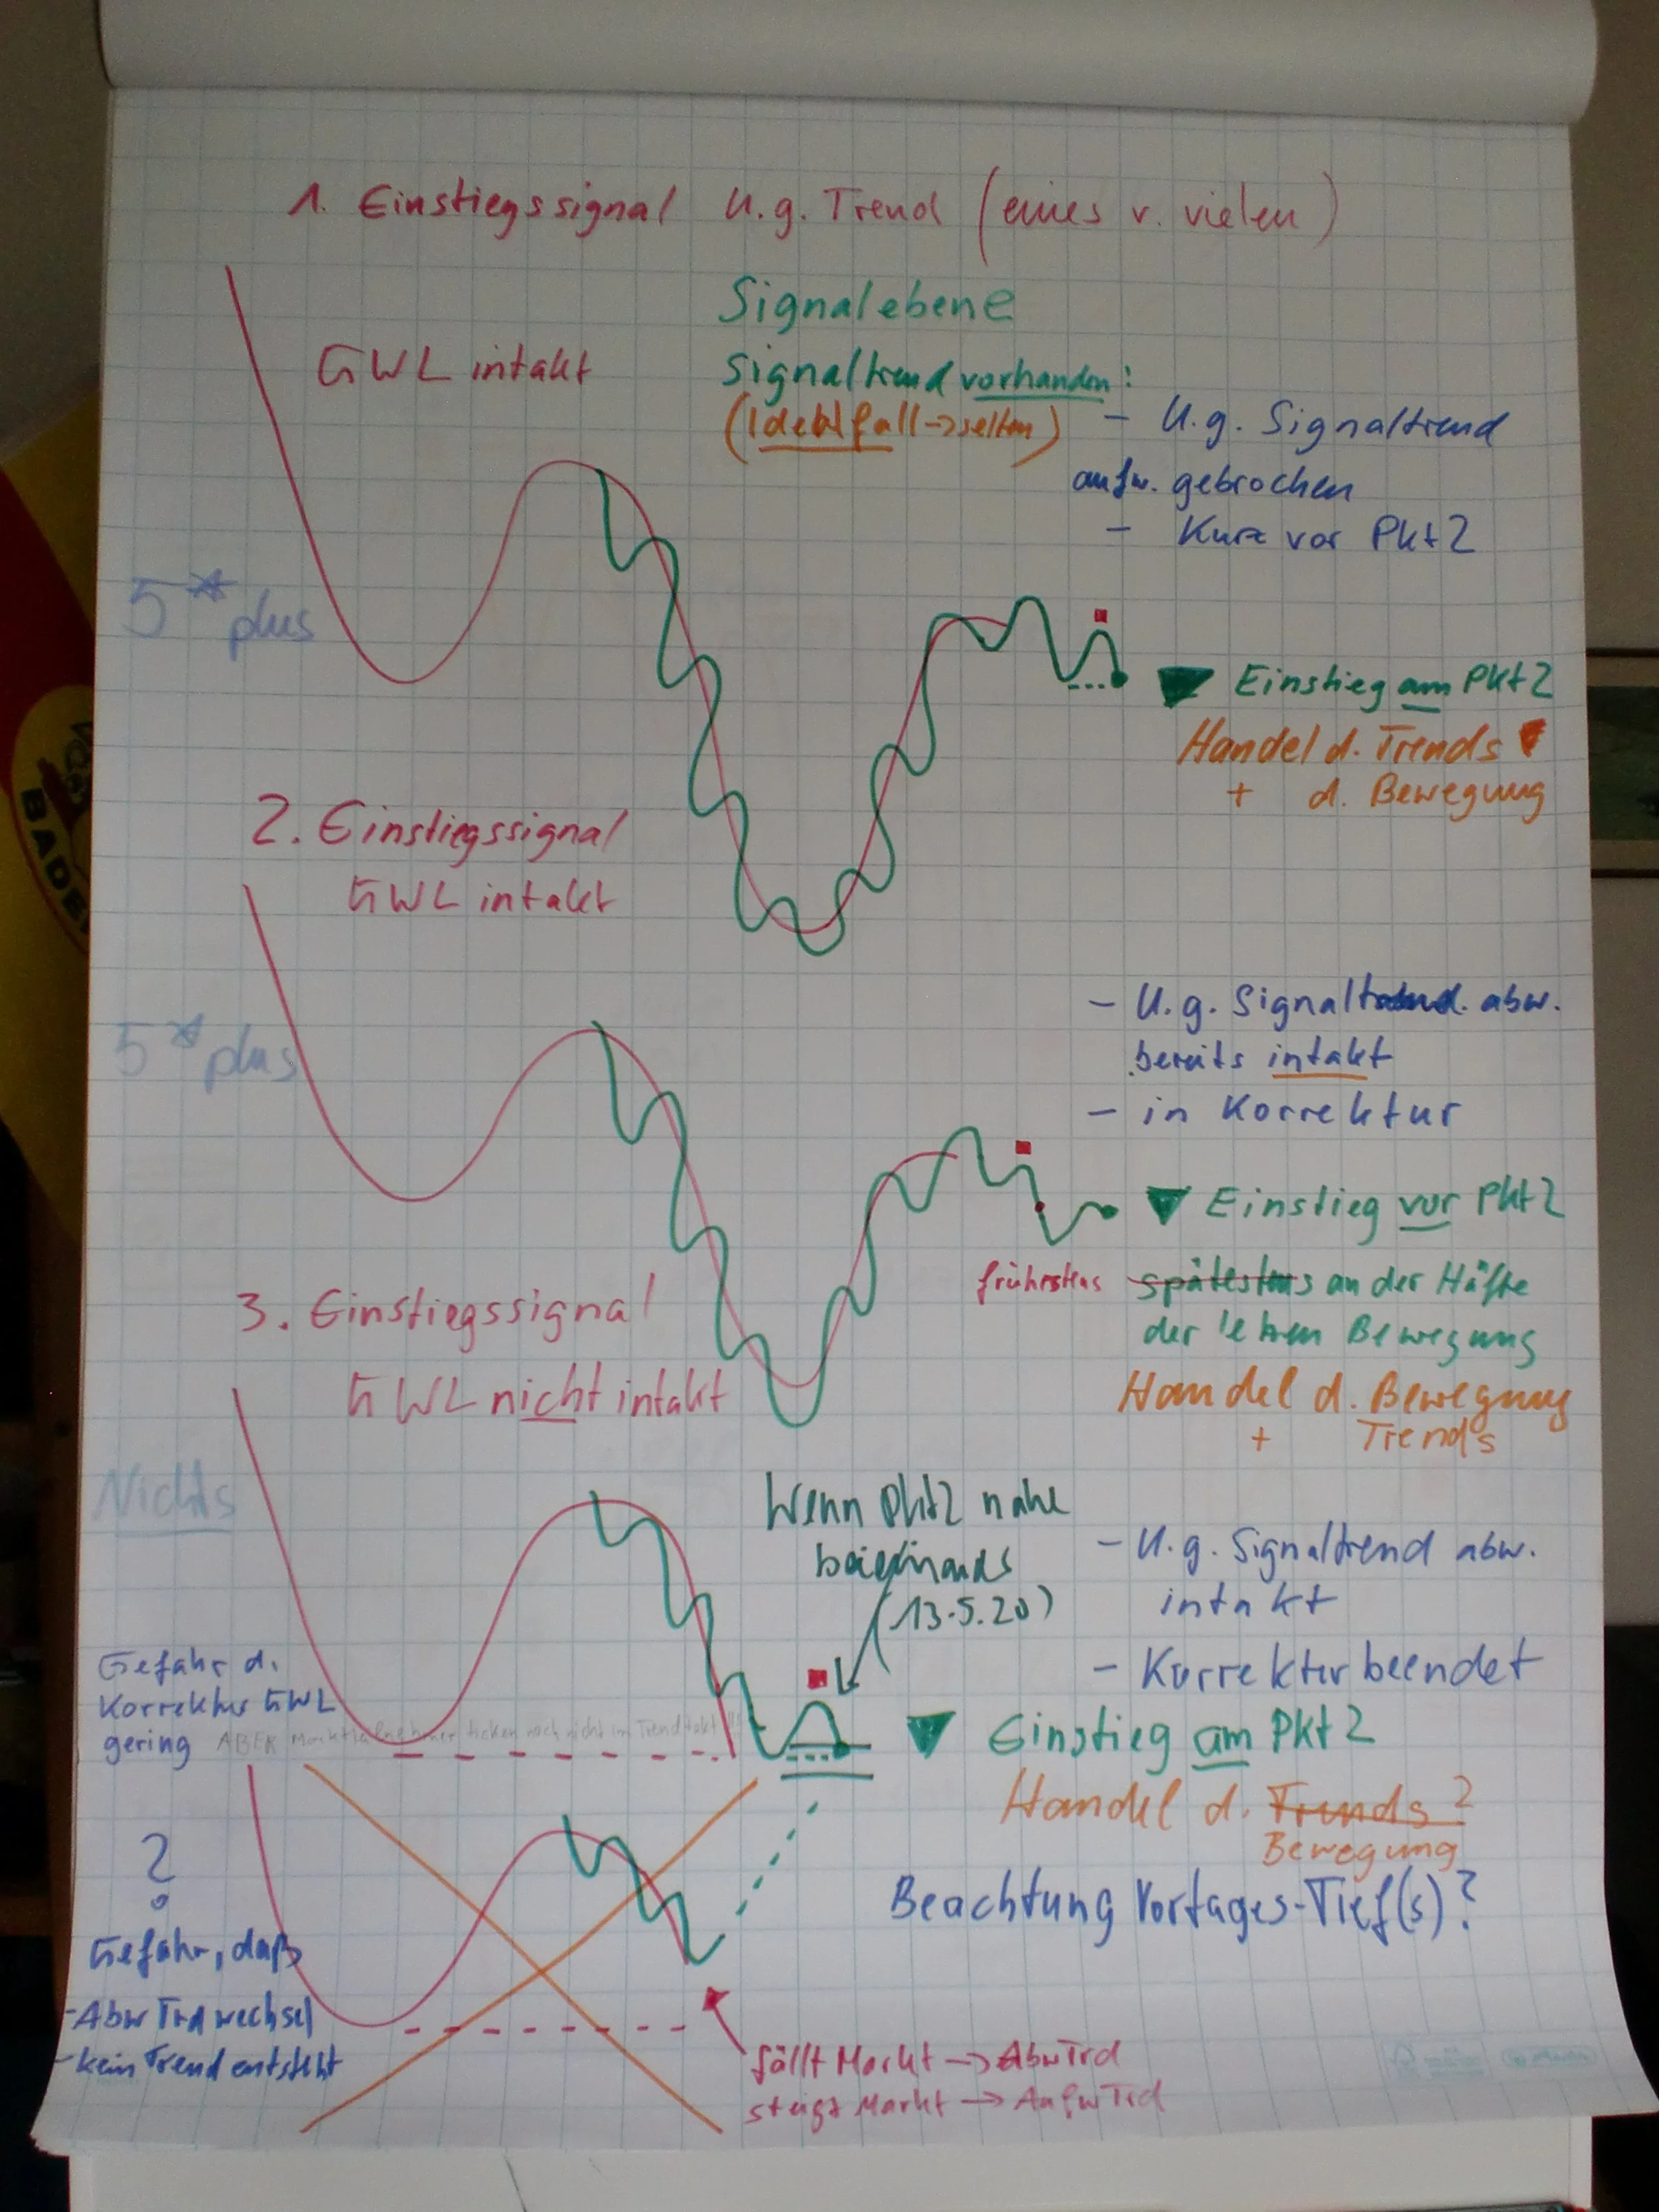 1. Einstiegssignal U.g. Trend (eines v. vielen)
GWL intakt
Signalebene
Signaltrend vorhanden:
(Idealfall->selten)
- U.g. Signaltrend
aufw. gebrochen
- Kurz vor Pkt2
5* plus
Einstieg am Pkt2
Handel d. Trends
+ d. Bewegung
BADE
2. Einstiegssignal
GWL intakt
5* plus
- U.g. Signaltrend. abw.
bereits intakt
- in Korrektur
Einstieg vor Pkt2
frühestens spätestens an der Häfte
der letzten Bewegung
Handel d. Bewegung
+ Trends
3. Einstiegssignal
GWL nicht intakt
Nichts
Wenn Pkt2 nahe
(13.5.20)
- U.g. Signaltrend abw.
intakt
- Korrektur beendet
Gefahr d.
Korrektur GWL
gering ABER Marktteilnehmer ticken noch nicht im Trendtakt!!!
Einstieg am Pkt2
Handel d. Trends?
Bewegung
Beachtung Vortages-Tief(s)?
?
Gefahr, daß
- Abw Trd wechsel
- kein Trend entsteht
fällt Markt -> AbwTrd
steigt Markt -> AufwTrd